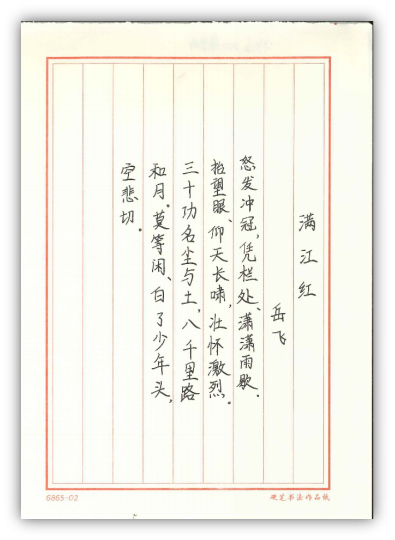 满江红
岳飞
怒发冲冠，凭栏处、潇潇雨歇．
抬望眼、仰天长啸，壮怀激烈。
三十功名尘与土，八千里路
和月。莫等闲、白了少年头，
空悲切。
6865-02
硬笔书法作品纸